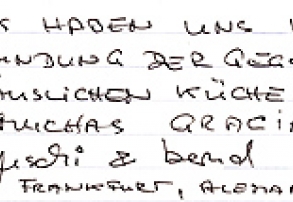 HABEN UNS
NDUNG DER GEG
ÄUSLICHEN KÜCHE
MUCHAS GRACI
uschi & bernd
FRANKFURT, ALEMA